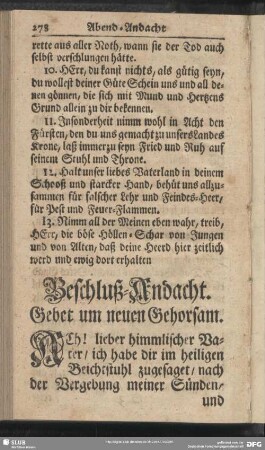 278 Abend-Andacht
rette aus aller Noth, wann sie der Tod auch
selbst verschlungen hätte.
10. HErr, du kanst nichts, als gütig seyn,
du wollest deiner Güte Schein uns und all de-
nen gönnen, die sich mit Mund und Hertzens
Grund allein zu dir bekennen.
11. Insonderheit nimm wohl in Acht den
Fürsten, den du uns gemacht zu unsers Landes
Krone, laß immerzu seyn Fried und Ruh auf
seinem Stuhl und Throne.
12. Halt unser liebes Vaterland in deinem
Schooß und starcker Hand, behüt uns allzu-
sammen für falscher Lehr und Feindes-Heer,
für Pest und Feuer-Flammen.
13. Nimm all der Meinen eben wahr, treib,
HErr, die böse Höllen-Schar von Jungen
und von Alten, daß deine Heerd hier zeitlich
werd und ewig dort erhalten
Beschluß-Andacht.
Gebet um neuen Gehorsam.
ACh! lieber himmlischer Va-
ter/ ich habe dir im heiligen
Beichtstuhl zugesaget/ nach
der Vergebung meiner Sünden/
und
SLUB